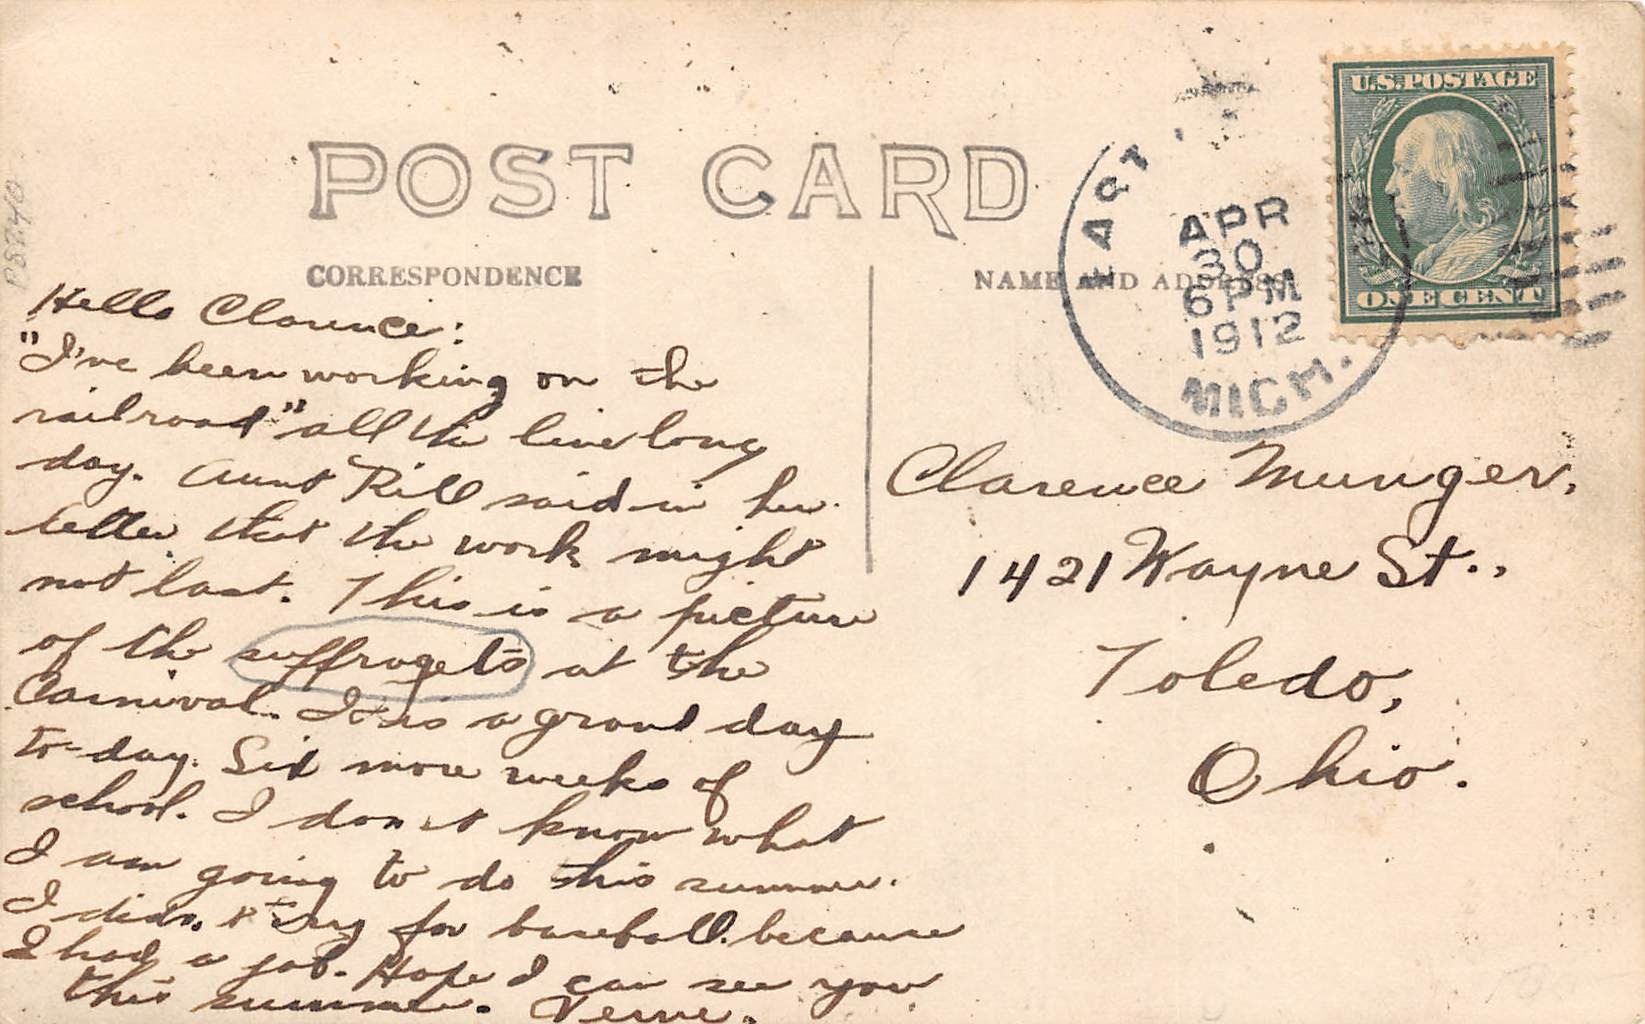 POST CARD
CORRESPONDENCE
NAME AND ADDRESS
U.S. POSTAGE
ONE CENT
APR
30
6 PM
1912
MICH.
P8840
Hello Clarence:
"I've been working on the
railroad" all the live long
day. Aunt Rill said in her
letter that the work might
not last. This is a picture
of the suffragets at the
Carnival. It is a grand day
to-day. Six more weeks of
school. I don't know what
I am going to do this summer.
I didn't try for baseball because
I had a job. Hope I can see you
this summer. Verne.
Clarence Munger,
1421 Wayne St.,
Toledo,
Ohio.